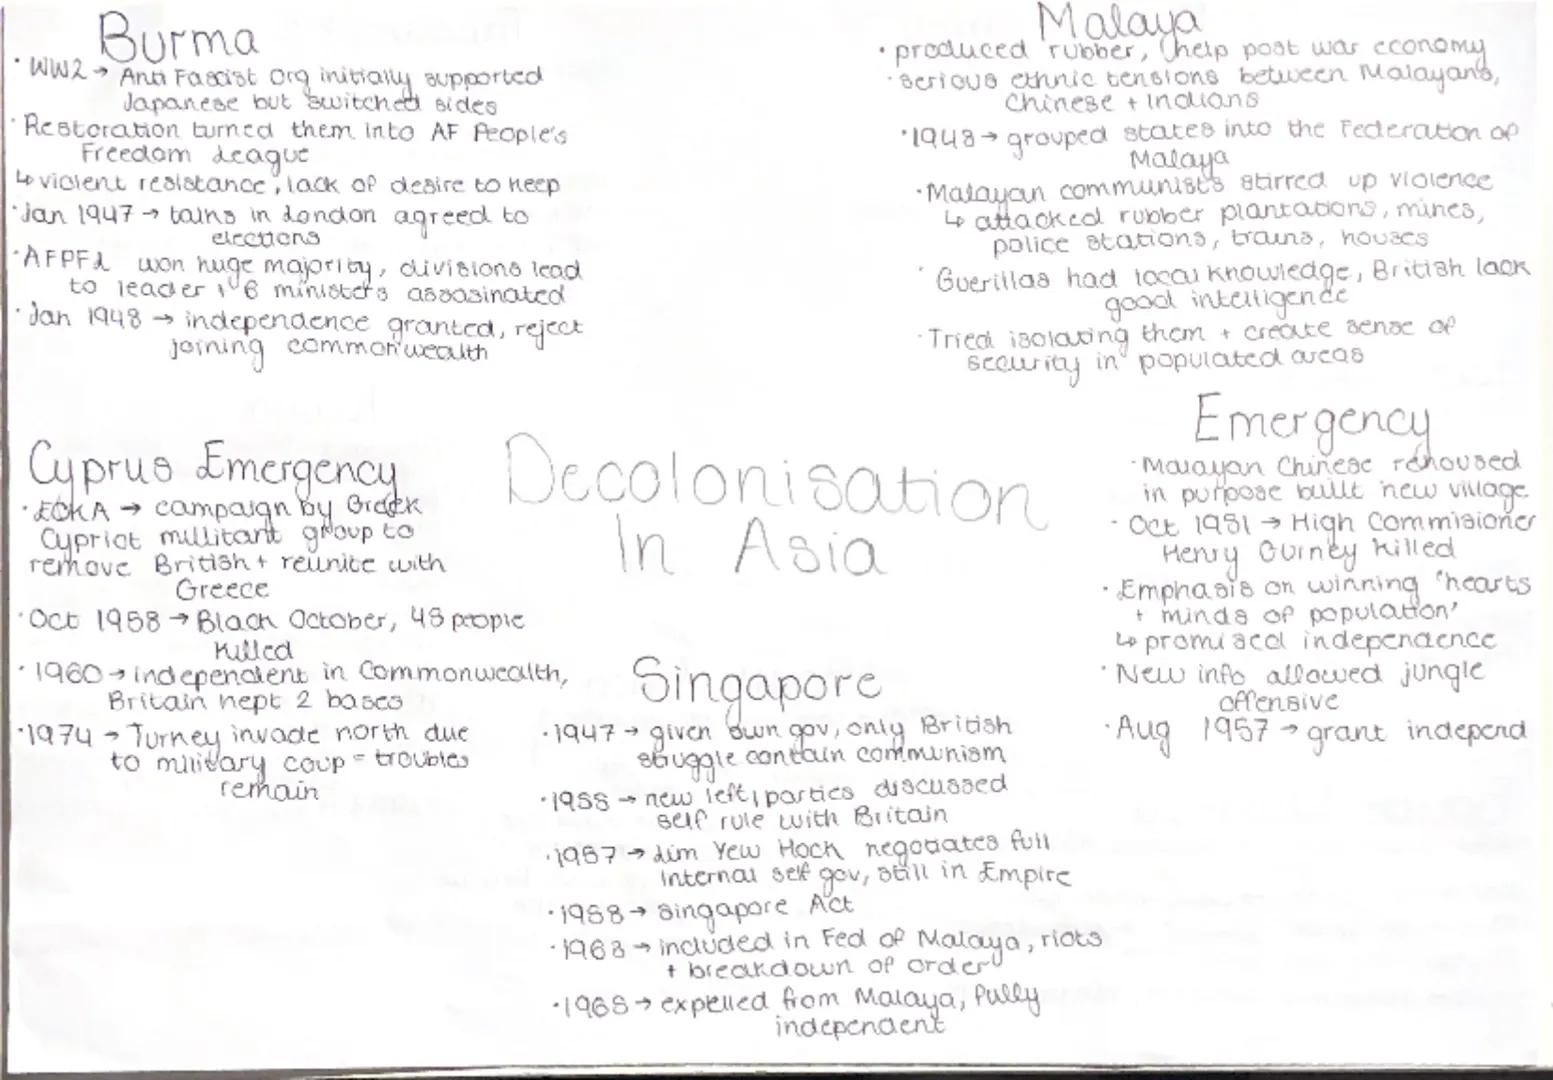 Burma
· WW2 → Anti Fascist Org initially supported
Japanese but switched sides
· Restoration turned them into AF People's
Freedom League
↳ violent resistance, lack of desire to keep
· Jan 1947 → talks in London agreed to
elections
· AFPFL won huge majority, divisions lead
to leader + 6 ministers assasinated
· Jan 1948 → independence granted, reject
joining commonwealth
Malaya
· produced rubber, help post war economy
· serious ethnic tensions between Malayans,
Chinese + Indians
· 1948 → grouped states into the Federation of
Malaya
· Malayan communists stirred up violence
↳ attacked rubber plantations, mines,
police stations, trains, houses
· Guerillas had local knowledge, British lack
good intelligence
· Tried isolating them + create sense of
security in populated areas
Emergency
· Malayan Chinese rehoused
in purpose built new village
· Oct 1951 → High Commisioner
Henry Gurney killed
· Emphasis on winning 'hearts
+ minds of population'
↳ promised independence
· New info allowed jungle
offensive
· Aug 1957 → grant independ
Cyprus Emergency
· EOKA → campaign by Greek
Cypriot millitant group to
remove British + reunite with
Greece
· Oct 1958 → Black October, 45 people
killed
· 1960 → independent in Commonwealth,
Britain kept 2 bases
· 1974 → Turkey invade north due
to military coup = troubles
remain
Decolonisation
In Asia
Singapore
· 1947 → given own gov, only British
struggle contain communism
· 1955 → new left parties discussed
self rule with Britain
· 1957 → Lim Yew Hock negotiates full
internal self gov, still in Empire
· 1958 → Singapore Act
· 1963 → included in Fed of Malaya, riots
+ breakdown of order
· 1965 → expelled from Malaya, fully
independent